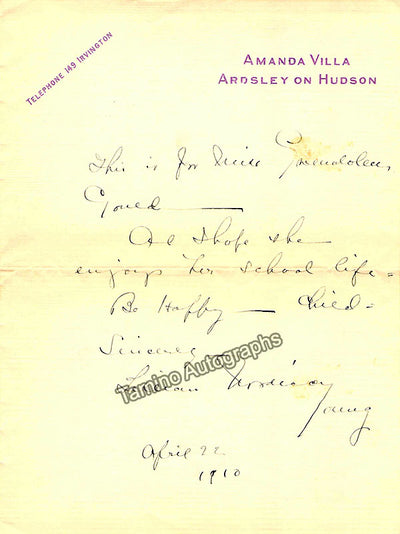 TELEPHONE 149 IRVINGTON
AMANDA VILLA
ARDSLEY ON HUDSON
This is for Miss Gwendolen
Gould —
And I hope she
enjoys her school life —
Be Happy — Child —
Sincerely
Tamino Autographs
Lillian Nordica
Young
April 22
1910